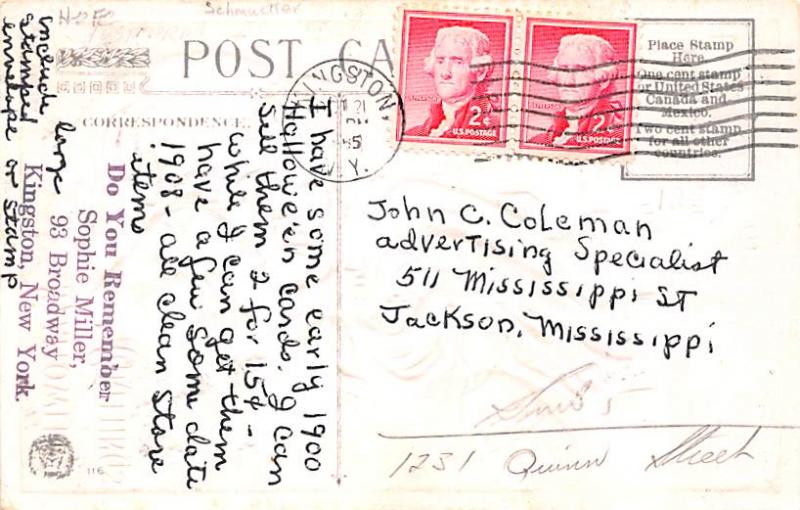 H-OFC
Schmucker
POST CA
CORRESPONDENCE.
Place Stamp
Here.
One cent stamp
for United States
Canada and
Mexico.
Two cent stamp
for all other
countries.
2¢
U.S. POSTAGE
2¢
U.S. POSTAGE
KINGSTON,
21
Y.
I have some early 1900
Hallowe'en cards. I can
sell them 2 for 15¢ -
while I can get them
have a few some date
1908 - all clean store
items
Do You Remember
Sophie Miller,
93 Broadway
Kingston, New York.
include large
stamped
envelope or stamp
116
John C. Coleman
advertising Specialist
511 Mississippi ST
Jackson, Mississippi
1231 Quinn Street